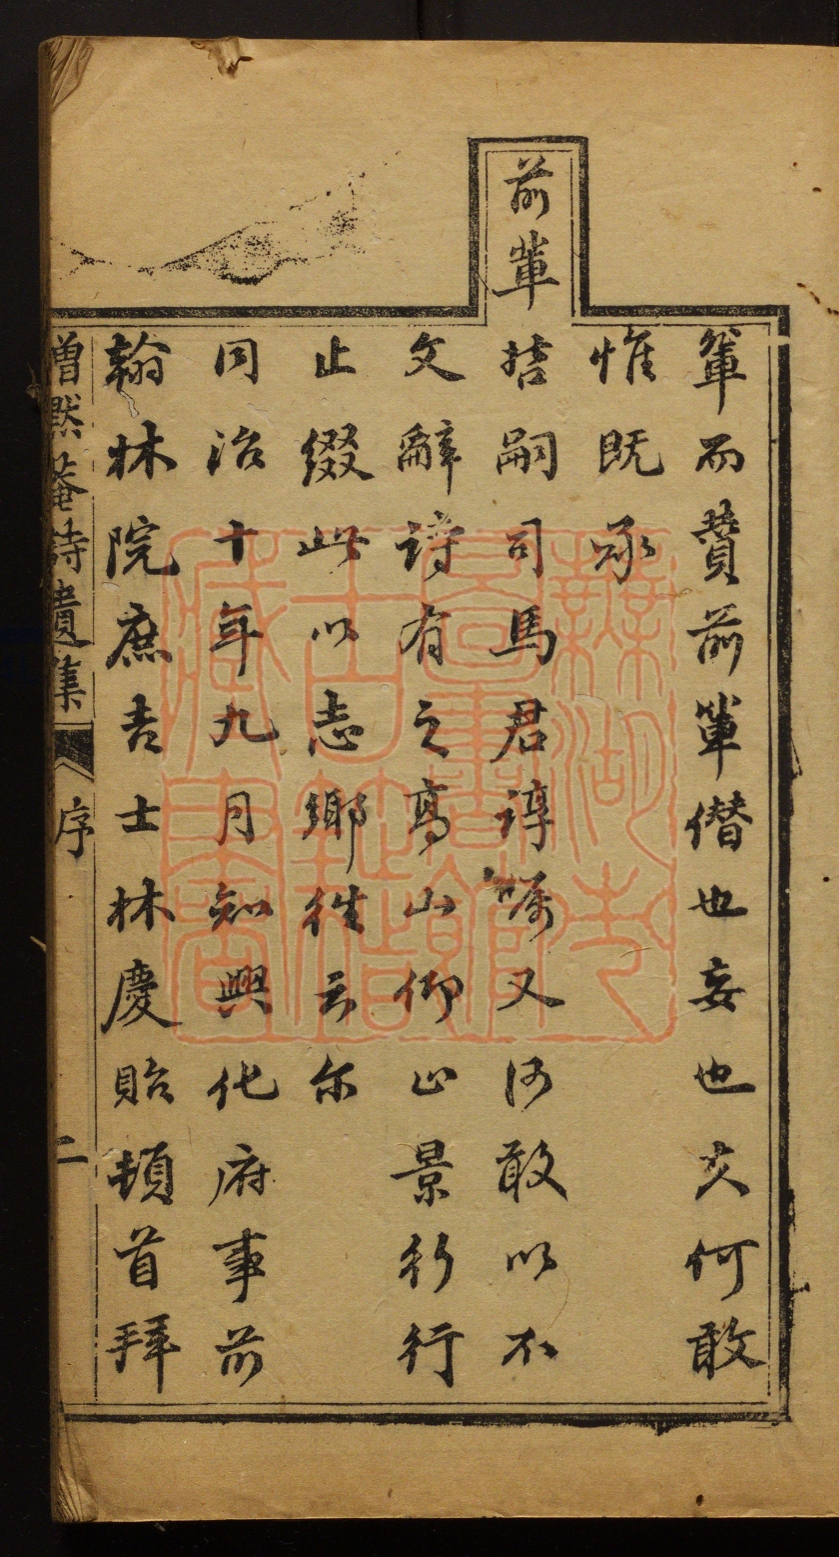 輩而贊前輩僭也妄也夫何敢
惟既承
前輩哲嗣司馬君諄囑又何敢以不
文辭詩有之高山仰止景行行
止綴此以志鄉往云尔
同治十年九月知興化府事前
翰林院庶吉士林慶貽頓首拜
曾默菴詩遺集 序 二